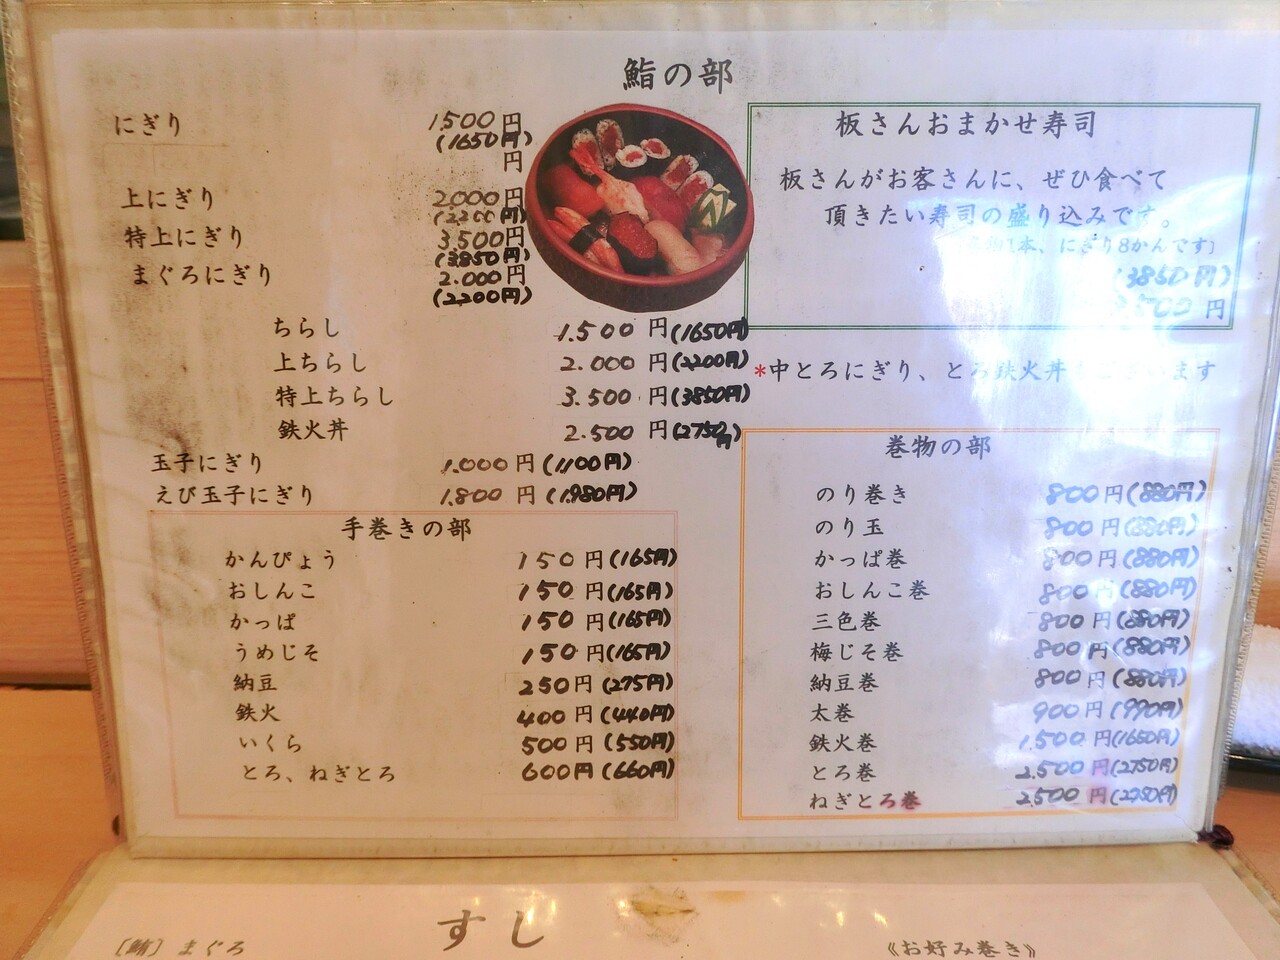 鮨の部
にぎり 1,500円
(1650円)
円
上にぎり 2,000円
(2200円)
特上にぎり 3,500円
(3,850円)
まぐろにぎり 2,000円
(2,200円)
ちらし 1,500円(1650円)
上ちらし 2,000円(2200円)
特上ちらし 3,500円(3850円)
鉄火丼 2,500円(2750円)
玉子にぎり 1,000円(1100円)
えび玉子にぎり 1,800円(1,980円)
手巻きの部
かんぴょう 150円(165円)
おしんこ 150円(165円)
かっぱ 150円(165円)
うめじそ 150円(165円)
納豆 250円(275円)
鉄火 400円(440円)
いくら 500円(550円)
とろ、ねぎとろ 600円(660円)
板さんおまかせ寿司
板さんがお客さんに、ぜひ食べて
頂きたい寿司の盛り込みです。
本、にぎり8かんです)
(3850円)
円
*中とろにぎり、とろ鉄火丼 ます
巻物の部
のり巻き 800円(880円)
のり玉 800円(880円)
かっぱ巻 800円(880円)
おしんこ巻 800円(880円)
三色巻 800円(880円)
梅じそ巻 800円(880円)
納豆巻 800円(880円)
太巻 900円(990円)
鉄火巻 1,500円(1650円)
とろ巻 2,500円(2750円)
ねぎとろ巻 2,500円(2750円)
すし
〔鮪〕まぐろ
《お好み巻き》